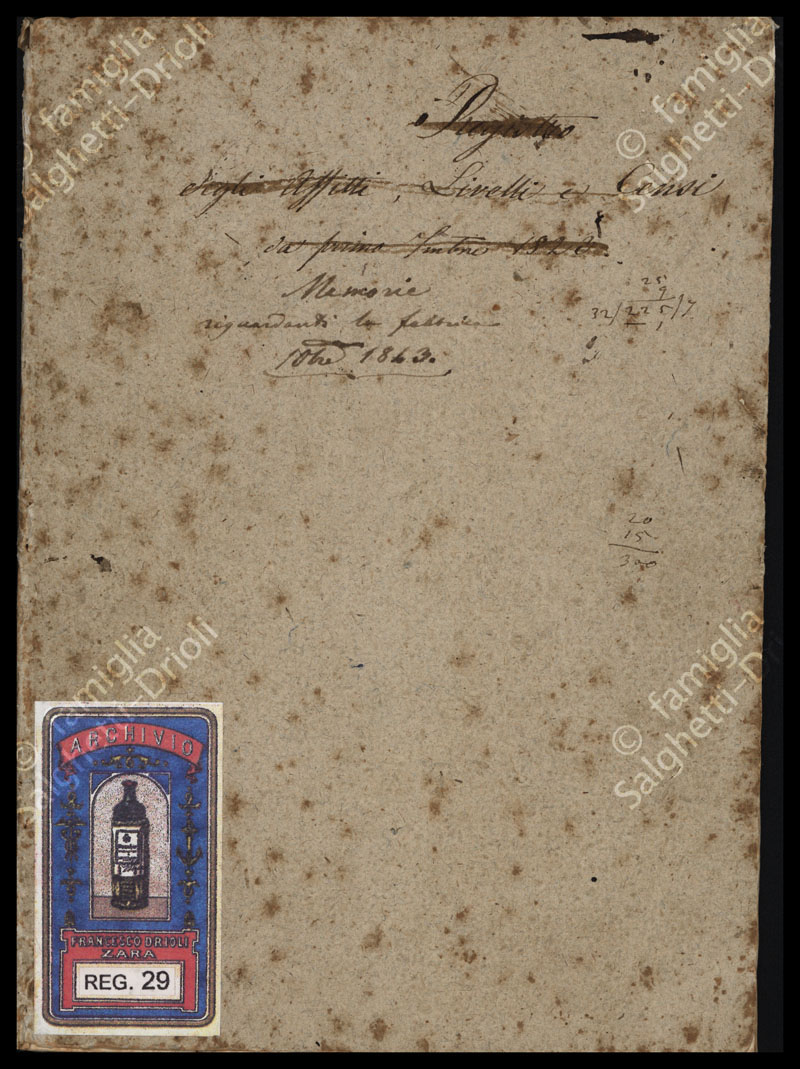 Registro
degli Affitti, Livelli e Censi
da primo 7mbre 1828.
Memorie
riguardanti la fabbrica
10bre 1843.
25
9
32/225/7
1
20
15
300
ARCHIVIO
FRANCESCO DRIOLI
ZARA
REG. 29
© famiglia
Salghetti-Drioli
© famiglia
Salghetti-Drioli
© famiglia
Salghetti-Drioli
© famiglia
Salghetti-Drioli